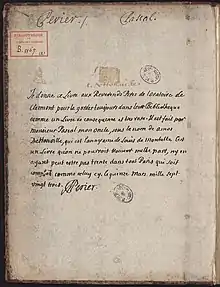 Perier./. Pascal.
B. 1167
Je donne ce livre aux Reverends Peres de l'oratoire de
Clermont pour le garder toujours dans leur Bibliotheque
comme un Livre de consequence et tres rare. Il est fait par
monsieur Pascal mon oncle, sous le nom de amos
dettonville, qui est l'anagrame de Louis de Montalte. C'est
un Livre qu'on ne pourroit trouver nulle part, ny en
ayant peut estre pas trente dans tout Paris qui soit
complet comme celuy cy. le quinze Mars mille sept
vingt trois. Perier.